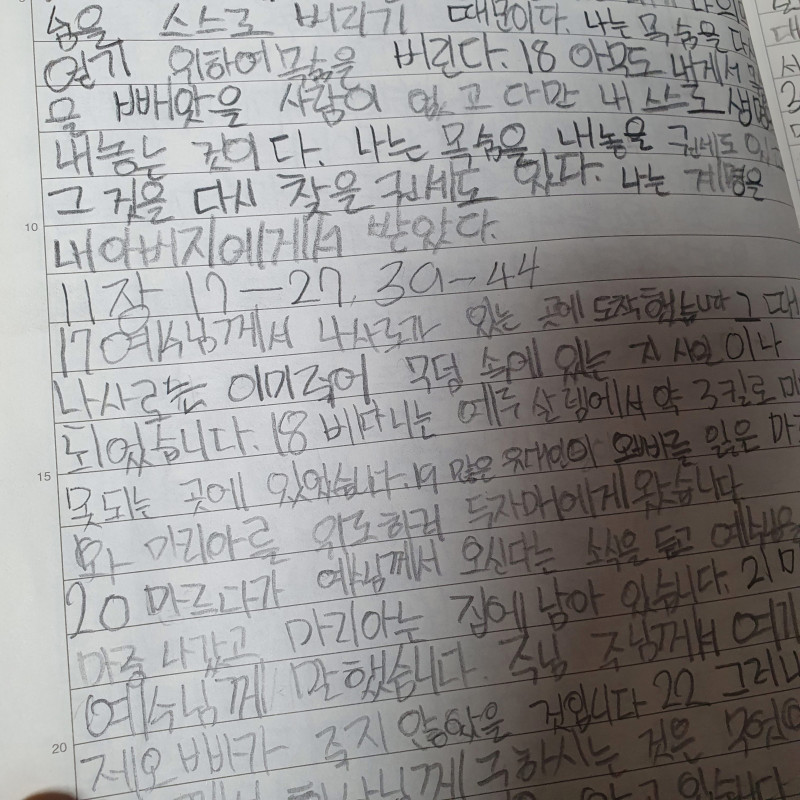 숨을 스스로 버리기 때문이다. 나는 목숨을 다
얻기 위하여 목숨을 버린다. 18 아무도 내게서 목
을 빼앗을 사람이 없고 다만 내 스스로 생명
내놓는 것이다. 나는 목숨을 내놓을 권세도 있고
그것을 다시 찾을 권세도 있다. 나는 계명을
10
내아버지에게서 받았다.
11장 17-27, 39-44
17 예수님께서 나사로가 있는 곳에 도착했습니다 그 때
나사로는 이미 죽어 무덤 속에 있는 지 4일이나
되었습니다. 18 베다니는 예루살렘에서 약 3킬로미
15
못되는 곳에 있었습니다. 19 많은 유대인이 오빠를 잃은 마
와 마리아를 위로하려 두자매에게 왔습니다
20 마르다가 예수님께서 오신다는 소식을 듣고 예수님을
마중 나갔고 마리아는 집에 남아 있습니다. 21 마
예수님께 말했습니다. 주님 주님께서 여기
제오빠가 죽지 않았을 것입니다 22 그러나
20
하나님께 구하시는 것은 무엇이
있습니다